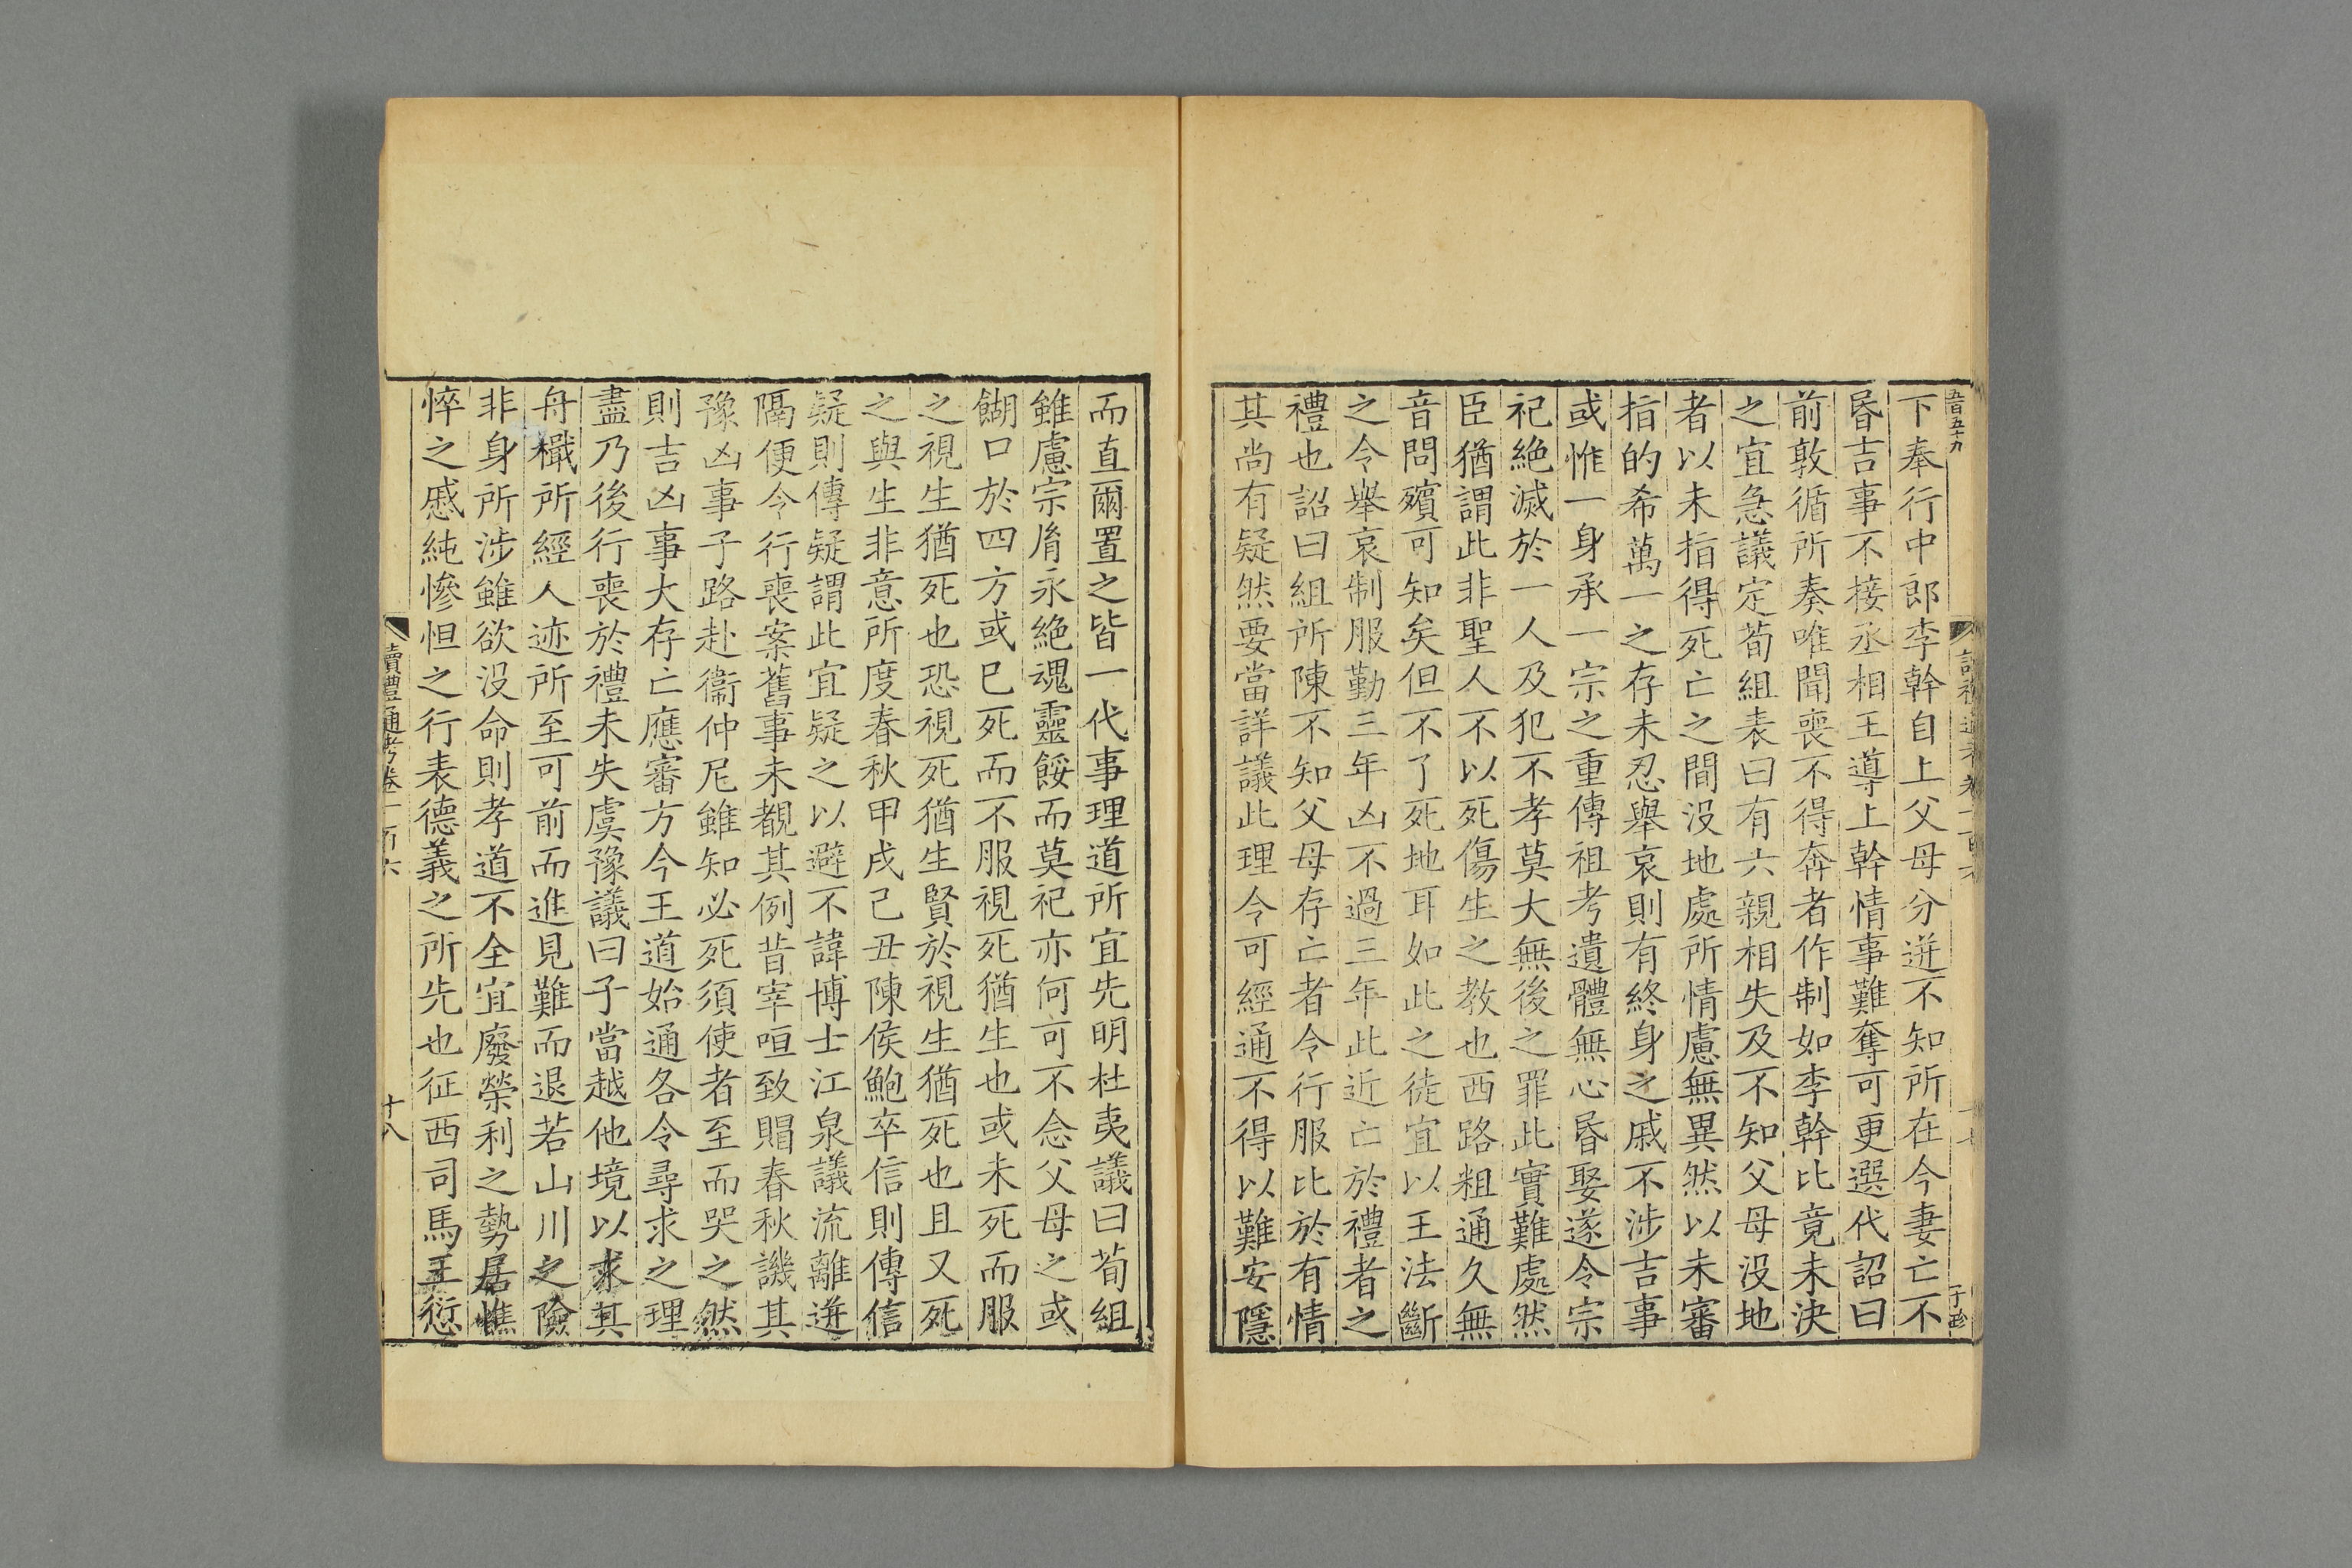 下奉行中郎李幹自上父母分迸不知所在今妻亡不
昬吉事不接丞相王導上幹情事難奪可更選代詔曰
前敦循所奏唯聞喪不得奔者作制如李幹比竟未決
之宜急議定荀組表曰有六親相失及不知父母没地
者以未指得死亡之間没地處所情慮無異然以未審
指的希萬一之存未忍舉哀則有終身之戚不涉吉事
或惟一身承一宗之重傳祖考遺體無心昬娶遂令宗
祀絶滅於一人及犯不孝莫大無後之罪此實難處然
臣猶謂此非聖人不以死傷生之教也西路粗通久無
音問殯可知矣但不了死地耳如此之徒宜以王法斷
之令舉哀制服勤三年凶不過三年此近亡於禮者之
禮也詔曰組所陳不知父母存亡者令行服比於有情
其尚有疑然要當詳議此理令可經通不得以難安隱
而直爾置之皆一代事理道所宜先明杜夷議曰荀組
雖慮宗胤永絶魂靈餒而莫祀亦何可不念父母之或
餬口於四方或巳死而不服視死猶生也或未死而服
之視生猶死也恐視死猶生賢於視生猶死也且又死
之與生非意所度春秋甲戌己丑陳侯鮑卒信則傳信
疑則傳疑謂此宜疑之以避不諱博士江泉議流離迸
隔便令行喪案舊事未覩其例昔宰咺致賵春秋譏其
豫凶事子路赴衞仲尼雖知必死須使者至而哭之然
則吉凶事大存亡應審方今王道始通各令尋求之理
盡乃後行喪於禮未失虞豫議曰子當越他境以求其
舟檝所經人迹所至可前而進見難而退若山川之險
非身所涉雖欲没命則孝道不全宜廢榮利之勢居憔
悴之戚純慘怛之行表德義之所先也征西司馬王愆
讀禮通考卷一百六
十八